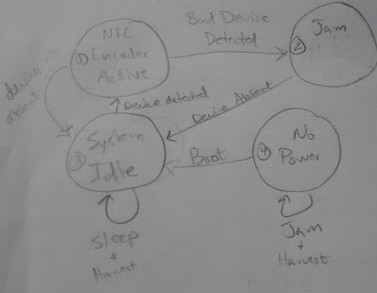 NFC
① Encoder
Active
Bad Device
Detected
② Jam
device
absent
Device detected
Device Absent
③ System
Idle
Boot
④ No
Power
Sleep
+
Harvest
Jam
+
Harvest